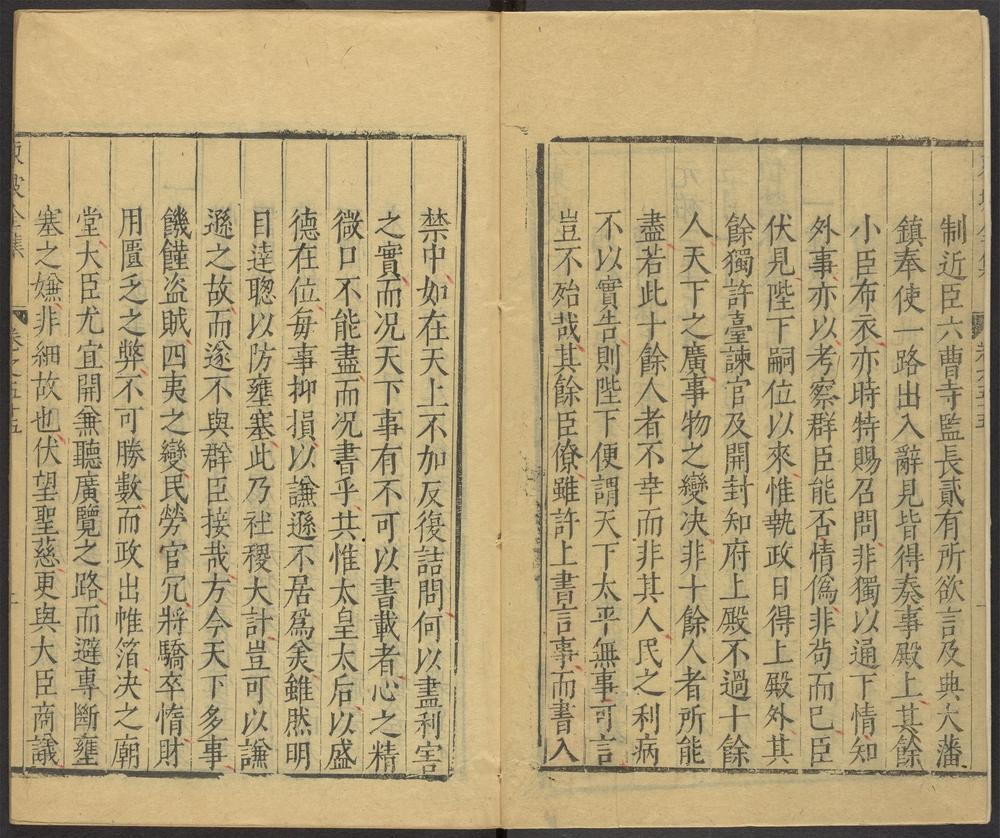 制近臣六曹寺監長貳有所欲言及典大藩
鎮奉使一路出入辭見皆得奏事殿上其餘
小臣布衣亦時特賜召問非獨以通下情知
外事亦以考察群臣能否情僞非苟而已臣
伏見陛下嗣位以來惟執政日得上殿外其
餘獨許臺諫官及開封知府上殿不過十餘
人天下之廣事物之變决非十餘人者所能
盡若此十餘人者不幸而非其人民之利病
不以實告則陛下便謂天下太平無事可言
豈不殆哉其餘臣僚雖許上書言事而書入
禁中如在天上不加反復詰問何以盡利害
之實而况天下事有不可以書載者心之精
微口不能盡而况書乎共惟太皇太后以盛
德在位毎事抑損以謙遜不居爲美雖然明
目達聰以防壅塞此乃社稷大計豈可以謙
遜之故而遂不與群臣接哉方今天下多事
饑饉盗賊四夷之變民勞官冗將驕卒惰財
用匱乏之弊不可勝數而政出帷箔决之廟
堂大臣尤宜開兼聽廣覽之路而避專斷壅
塞之嫌非細故也伏望聖慈更與大臣商議
卷之五十五